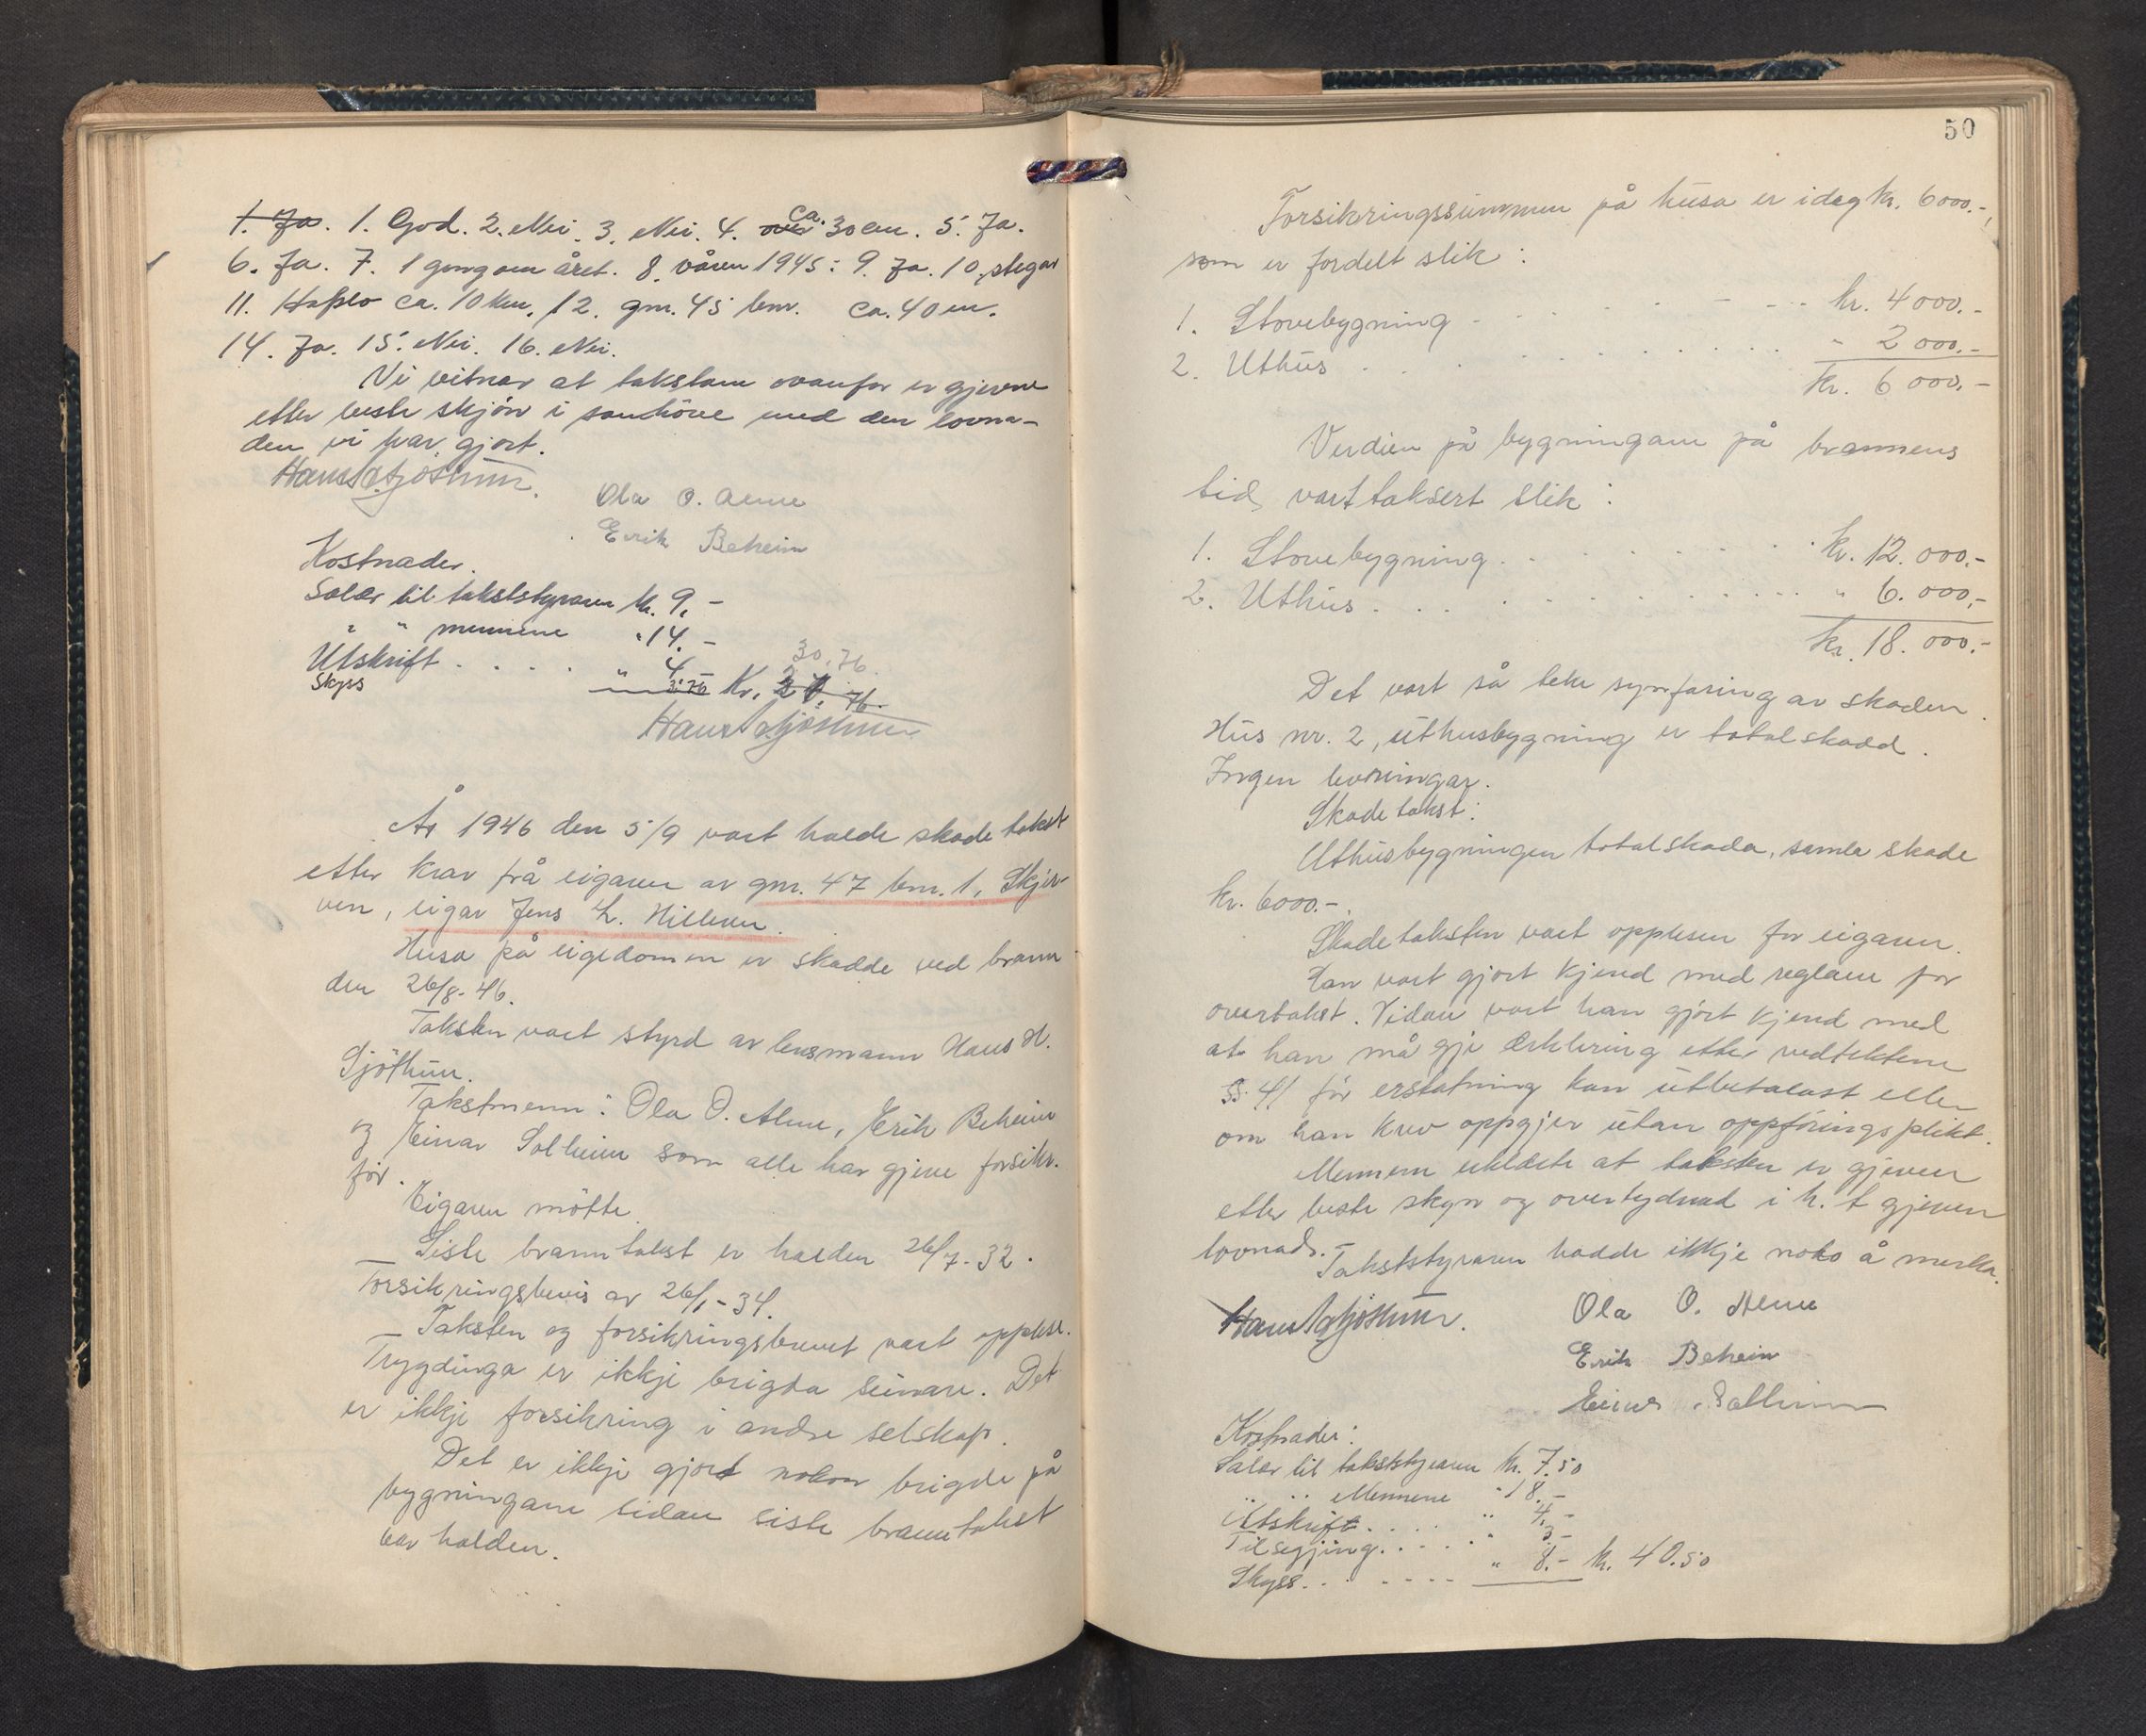 1. Ja. 1. God. 2. Nei. 3. Nei. 4. over ca. 30 cm. 5. Ja.
6. Ja. 7. 1 gong om året. 8. våren 1945. 9. Ja. 10. stegar
11. Hafslo ca. 10 km. 12. gnr. 45 bnr. ca. 40 m.
14. Ja. 15. Nei. 16. Nei.
Vi vitnar at takstane ovanfor er gjevne
etter beste skjön i samhöve med den lovna-
den vi har gjort.
Hans H Sjöthun.
Ola O. Alme
Erik Beheim
Kostnader.
Salær til takststyraren kr. 9,-
" " mennene " 14.-
Utskrift . . . . " 4.-
30.76.
Skyss " 3.76 Kr. 27.76.
Hans H Sjöthun
År 1946 den 5/9 vart halde skadetakst
etter krav frå eigaren av gnr. 47 bnr. 1, Skjer-
ven, eigar Jens L. Hilleren.
Husa på eigedomen er skadde ved brann
den 26/8-46.
Taksten vart styrd av lensmann Hans H.
Sjöthun.
Takstmenn: Ola O. Alme, Erik Beheim
og Einar Solheim som alle har gjeve forsikr.
för.
Eigaren mötte.
Siste branntakst er halden 26/7-32.
Forsikringsbevis av 26/1-34.
Taksten og forsikringsbrevet vart opplese.
Trygdinga er ikkje brigda seinare. Det
er ikkje forsikring i andre selskap.
Det er ikkje gjort nokon brigde på
bygningane sidan siste branntakst
var halden.
50
Forsikringssummen på husa er idag kr. 6000.-,
som er fordelt slik:
1. Stovebygning - . . . . - - . . kr. 4000.-
2. Uthus . . . . . . . . . " 2000.-
kr. 6000.-
Verdien på bygningane på brannens
tid vart taksert slik:
1. Stovebygning . . . . . . . . kr. 12.000.-
2. Uthus . . . . . . . . . . " 6.000,-
kr. 18.000.-
Det vart så teke synfaring av skaden.
Hus nr. 2, uthusbygning er totalskadd.
Ingen levningar.
Skadetakst:
Uthusbygningen totalskada, samla skade
kr. 6000.-.
Skadetaksten vart opplesen for eigaren.
Han vart gjort kjend med reglane for
overtakst. Vidare vart han gjort kjend med
at han må gje erklæring etter vedtektene
§ 41 för erstatning kan utbetalast eller
om han krev oppgjer utan oppföringsplikt.
Mennene erklærte at taksten er gjeven
etter beste skyn og overtydnad i h. t gjeven
lovnad.
Takststyraren hadde ikkje noko å merka.
Hans H Sjöthun.
Ola O. Alme
Erik Beheim
Einar Solheim
Kostnader:
Salær til takststyraren kr. 7.50
" " Mennene " 18.-
Utskrift . . . . " 4.-
Tilsegjing . . . . " 3.-
Skyss . . . - - - - " 8.- kr. 40.50